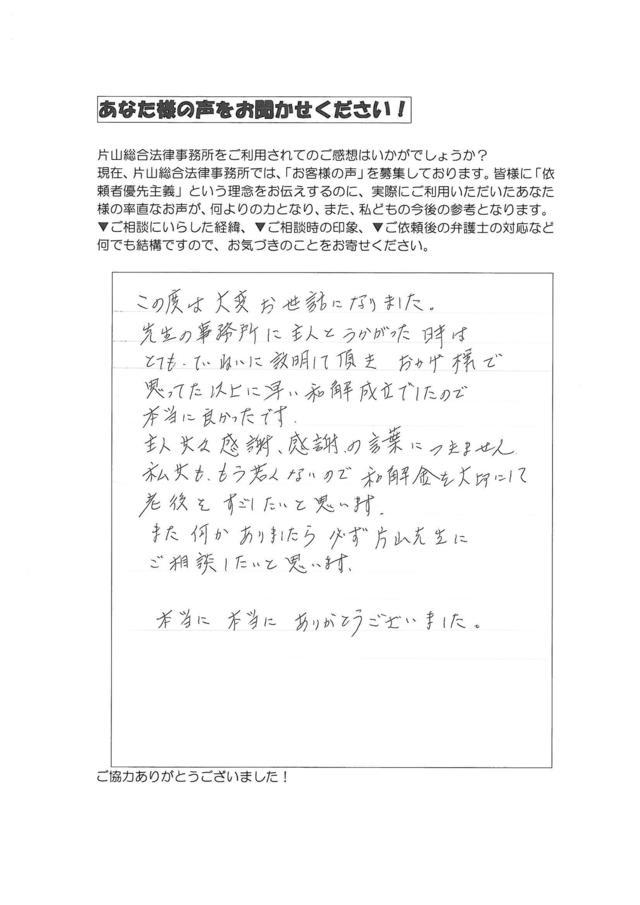 あなた様の声をお聞かせください！
片山総合法律事務所をご利用されてのご感想はいかがでしょうか？
現在、片山総合法律事務所では、「お客様の声」を募集しております。皆様に「依
頼者優先主義」という理念をお伝えするのに、実際にご利用いただいたあなた
様の率直なお声が、何よりの力となり、また、私どもの今後の参考となります。
▼ご相談にいらした経緯、▼ご相談時の印象、▼ご依頼後の弁護士の対応など
何でも結構ですので、お気づきのことをお寄せください。
この度は大変お世話になりました。
先生の事務所に主人とうかがった日時は
とても、ていねいに説明して頂き おかげ様で
思ってた以上に早い和解成立でしたので
本当に良かったです。
主人共々感謝、感謝、の言葉につきません
私共も、もう若くないので和解金を大切にして
老後をすごしたいと思います。
また何かありましたら必ず片山先生に
ご相談したいと思います。
本当に 本当に ありがとうございました。
ご協力ありがとうございました！